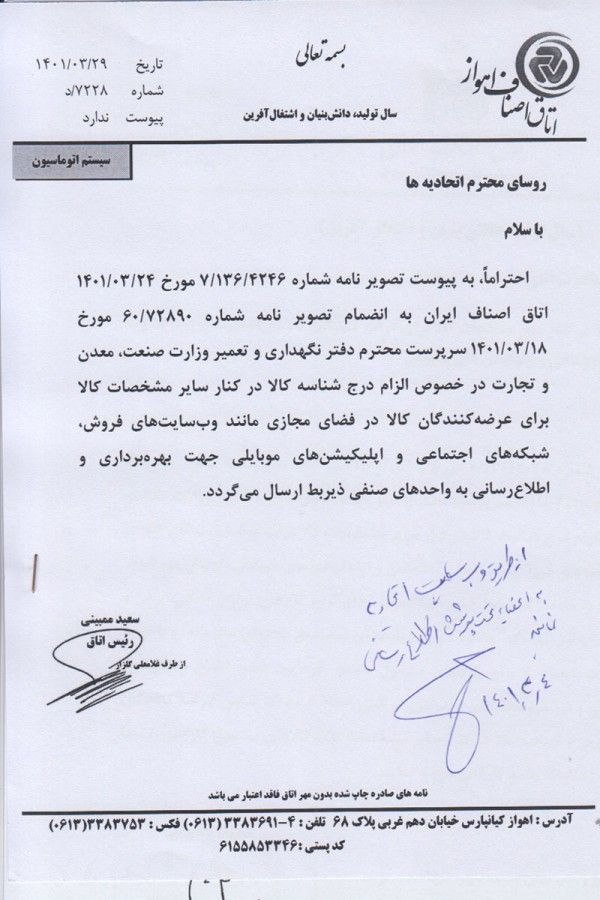 بسمه تعالی
اتاق اصناف اهواز
تاریخ ۱۴۰۱/۰۳/۲۹
شماره ۷۲۲۸/د
پیوست ندارد
سال تولید، دانش‌بنیان و اشتغال‌آفرین
سیستم اتوماسیون
روسای محترم اتحادیه ها
با سلام
احتراماً، به پیوست تصویر نامه شماره ۷/۱۳۶/۴۲۴۶ مورخ ۱۴۰۱/۰۳/۲۴
اتاق اصناف ایران به انضمام تصویر نامه شماره ۶۰/۷۲۸۹۰ مورخ
۱۴۰۱/۰۳/۱۸ سرپرست محترم دفتر نگهداری و تعمیر وزارت صنعت، معدن
و تجارت در خصوص الزام درج شناسه کالا در کنار سایر مشخصات کالا
برای عرضه‌کنندگان کالا در فضای مجازی مانند وب‌سایت‌های فروش،
شبکه‌های اجتماعی و اپلیکیشن‌های موبایلی جهت بهره‌برداری و
اطلاع‌رسانی به واحدهای صنفی ذیربط ارسال می‌گردد.
از طریق وب سایت اتحادیه
به اعضاء تحت پوشش اطلاع رسانی
نمائید
سعید ممبینی
رئیس اتاق
از طرف غلامعلی گلزار
نامه های صادره چاپ شده بدون مهر اتاق فاقد اعتبار می باشد
آدرس : اهواز کیانپارس خیابان دهم غربی پلاک ۶۸ تلفن : ۴-۳۳۸۳۶۹۱ (۰۶۱۳) فکس : ۳۳۸۳۷۵۳(۰۶۱۳)
کد پستی : ۶۱۵۵۸۵۳۳۴۶